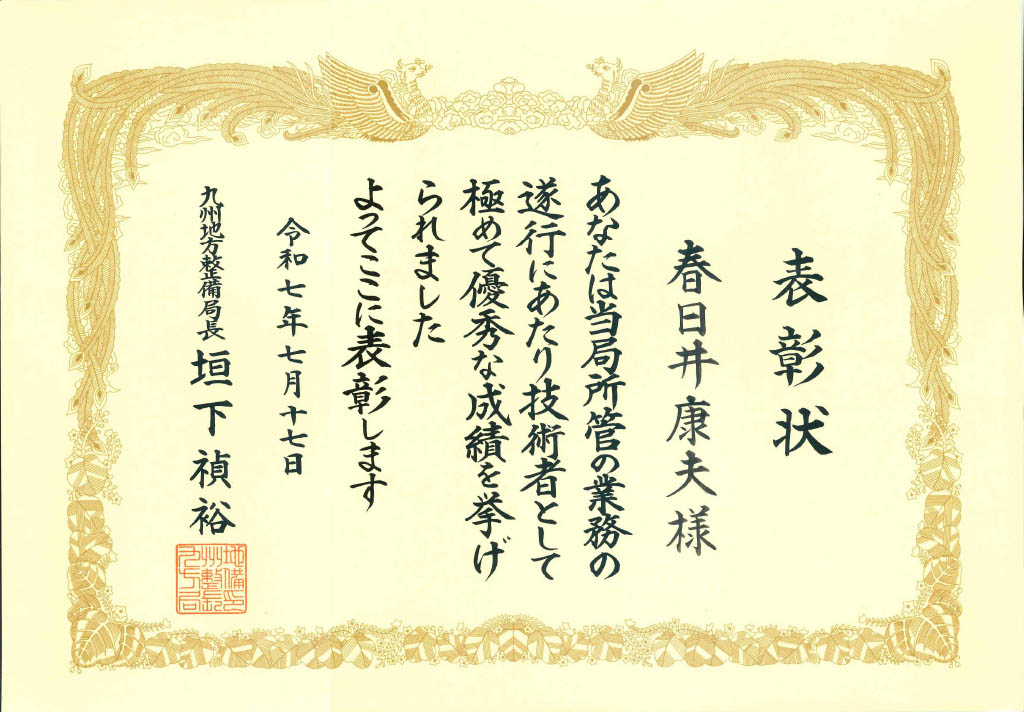 表彰状
春日井康夫様
あなたは当局所管の業務の
遂行にあたり技術者として
極めて優秀な成績を挙げ
られました
よってここに表彰します
令和七年七月十七日
九州地方整備局長 垣下禎裕